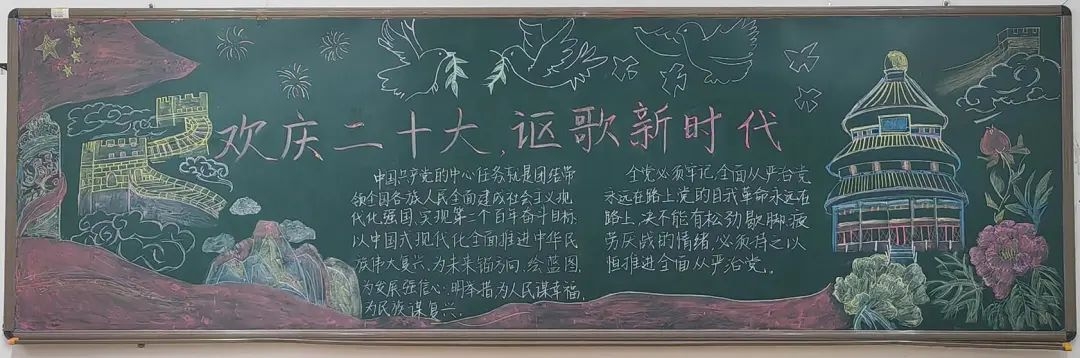 欢庆二十大,讴歌新时代
中国共产党的中心任务就是团结带
领全国各族人民全面建成社会主义现
代化强国、实现第二个百年奋斗目标,
以中国式现代化全面推进中华民
族伟大复兴,为未来锚方向,绘蓝图,
为发展强信心,明举措为人民谋幸福,
为民族谋复兴。
全党必须牢记,全面从严治党
永远在路上党的自我革命永远在
路上,决不能有松劲歇脚、疲
劳厌战的情绪,必须持之以
恒推进全面从严治党。